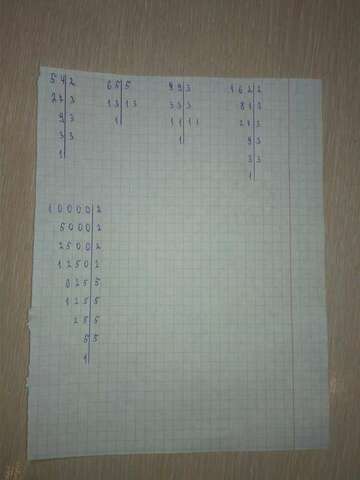 54|2
27|3
9|3
3|3
1|
65|5
13|13
1|
99|3
33|3
11|11
1|
162|2
81|3
27|3
9|3
3|3
1|
10000|2
5000|2
2500|2
1250|2
625|5
125|5
25|5
5|5
1|